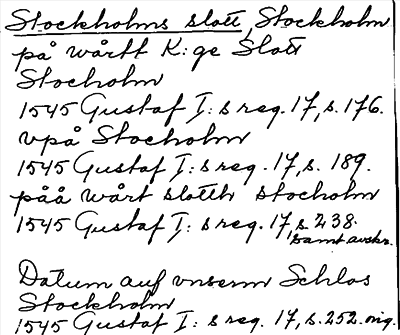 Stockholms slott, Stockholm
på wårtt K:ge Slott
Stocholm
1545 Gustaf I:s reg. 17, s. 176.
vpå Stocholm
1545 Gustaf I:s reg. 17, s. 189.
påå wårt slotth stocholm
1545 Gustaf I:s reg. 17, s. 238.
samt avskr.
Datum auf vnserm Schlos
Stockholm
1545 Gustaf I:s reg. 17, s. 252. orig.